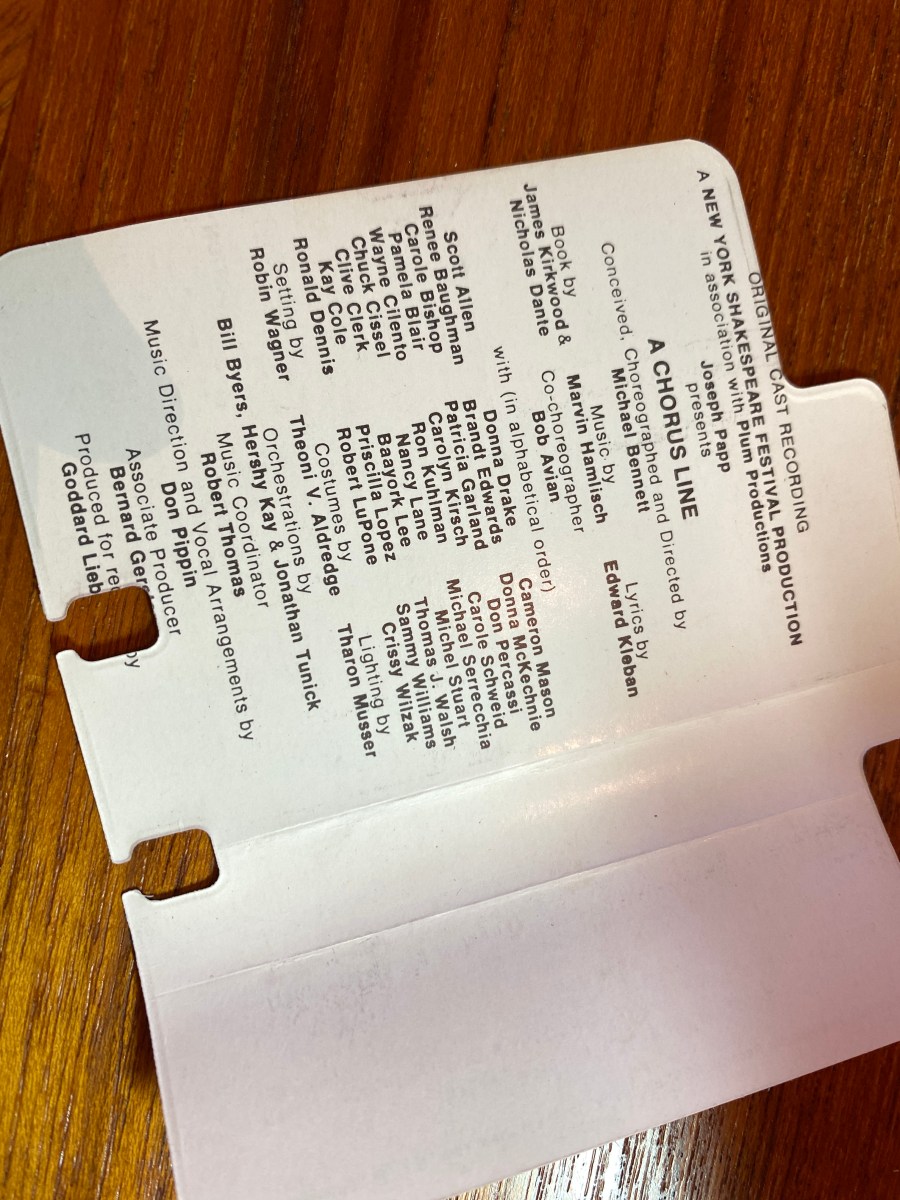 ORIGINAL CAST RECORDING
A NEW YORK SHAKESPEARE FESTIVAL PRODUCTION
in association with Plum Productions
Joseph Papp
presents
A CHORUS LINE
Conceived, Choreographed and Directed by
Michael Bennett
Book by
James Kirkwood &
Nicholas Dante
Music by
Marvin Hamlisch
Lyrics by
Edward Kleban
Co-choreographer
Bob Avian
with (in alphabetical order)
Scott Allen
Renee Baughman
Carole Bishop
Pamela Blair
Wayne Cilento
Chuck Cissel
Clive Clerk
Kay Cole
Ronald Dennis
Donna Drake
Brandt Edwards
Patricia Garland
Carolyn Kirsch
Ron Kuhlman
Nancy Lane
Baayork Lee
Priscilla Lopez
Robert LuPone
Cameron Mason
Donna McKechnie
Don Percassi
Carole Schweid
Michael Serrecchia
Michel Stuart
Thomas J. Walsh
Sammy Williams
Crissy Wilzak
Setting by
Robin Wagner
Costumes by
Theoni V. Aldredge
Lighting by
Tharon Musser
Orchestrations by
Bill Byers, Hershy Kay & Jonathan Tunick
Music Coordinator
Robert Thomas
Music Direction and Vocal Arrangements by
Don Pippin
Associate Producer
Bernard Ger
Produced for re by
Goddard Lieb